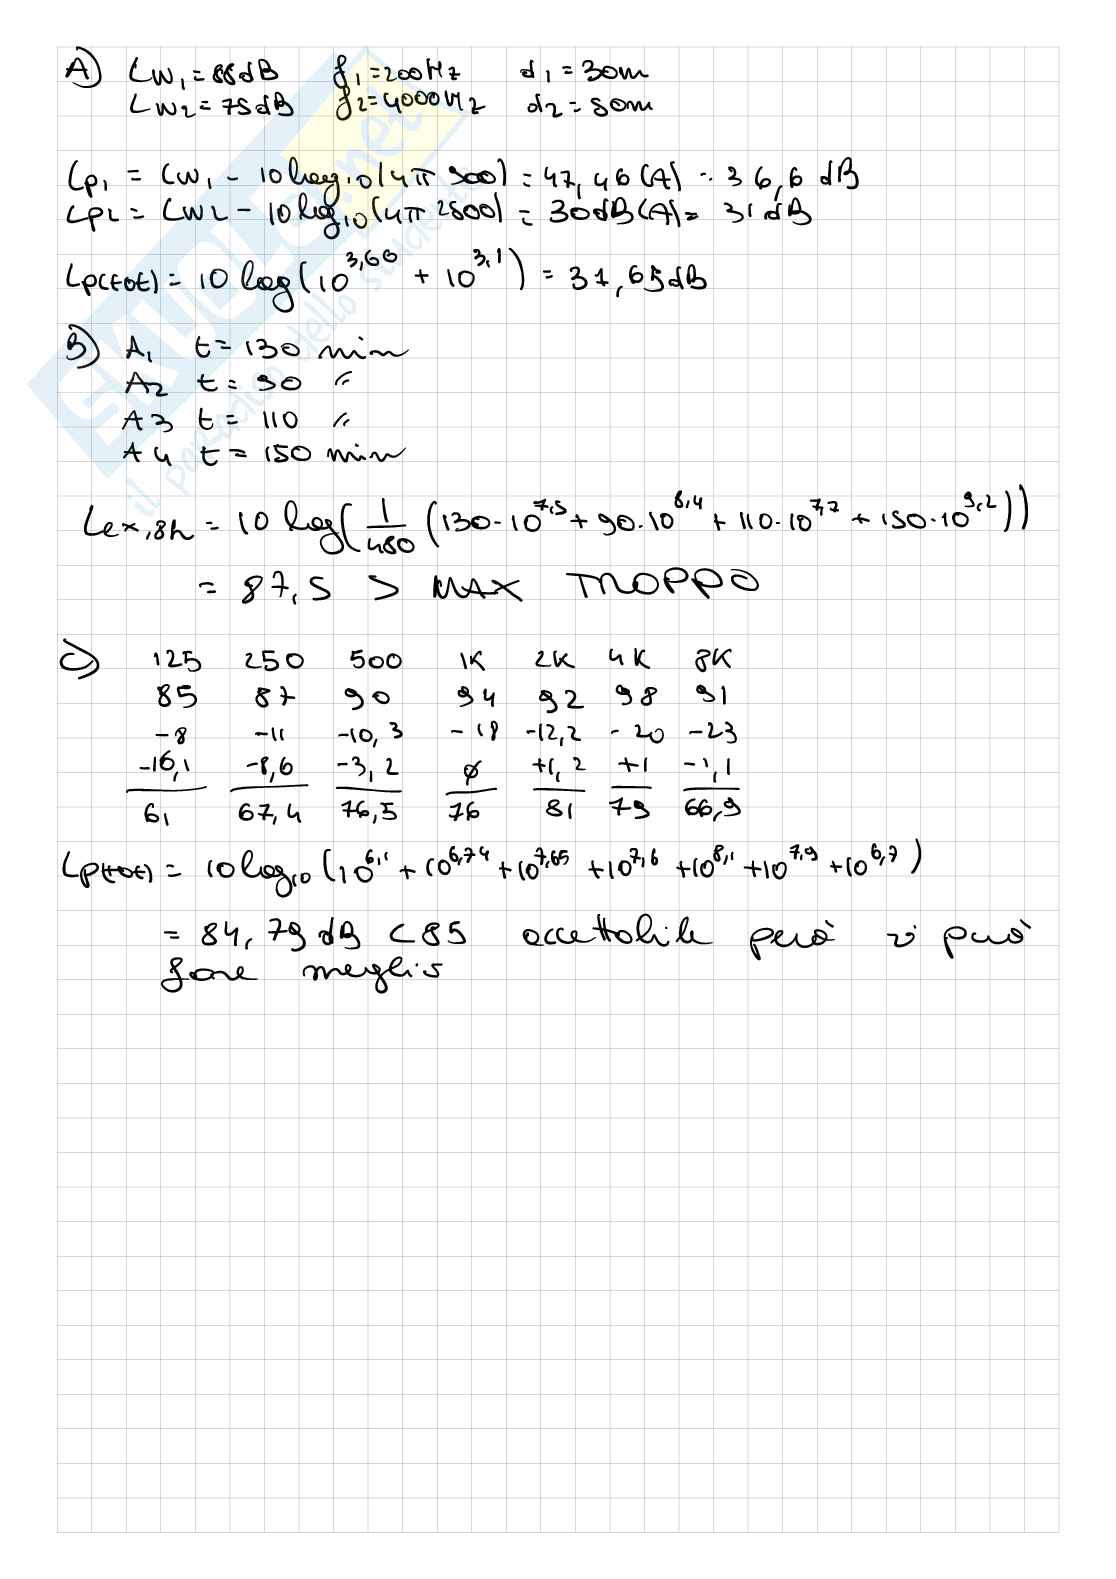 A) Lw1 = 88dB f1 = 200Hz d1 = 30m
Lw2 = 75dB f2 = 4000Hz d2 = 50m
Lp1 = Lw1 - 10log10(4π 900) = 47,46(A) -· 36,6 dB
Lp2 = Lw2 - 10log10(4π 2500) = 30dB(A) = 31dB
Lp(tot) = 10 log(10^3,66 + 10^3,1) = 37,65dB
B) A1 t = 130 min
A2 t = 90 "
A3 t = 110 "
A4 t = 150 min
Lex,8h = 10 log(1/480 (130·10^7,5 + 90·10^8,4 + 110·10^7,7 + 150·10^9,2))
= 87,5 > MAX TROPPO
C) 125 250 500 1K 2K 4K 8K
85 87 90 94 92 98 91
-8 -11 -10,3 -18 -12,2 -20 -23
-16,1 -8,6 -3,2 ø +1,2 +1 -1,1
61 67,4 76,5 76 81 79 66,9
Lp(tot) = 10log10(10^6,1 + 10^6,74 + 10^7,65 + 10^7,6 + 10^8,1 + 10^7,9 + 10^6,7)
= 84,79 dB < 85 accettabile però si può
fare meglio
SKUOLA.net
il paradiso dello studente